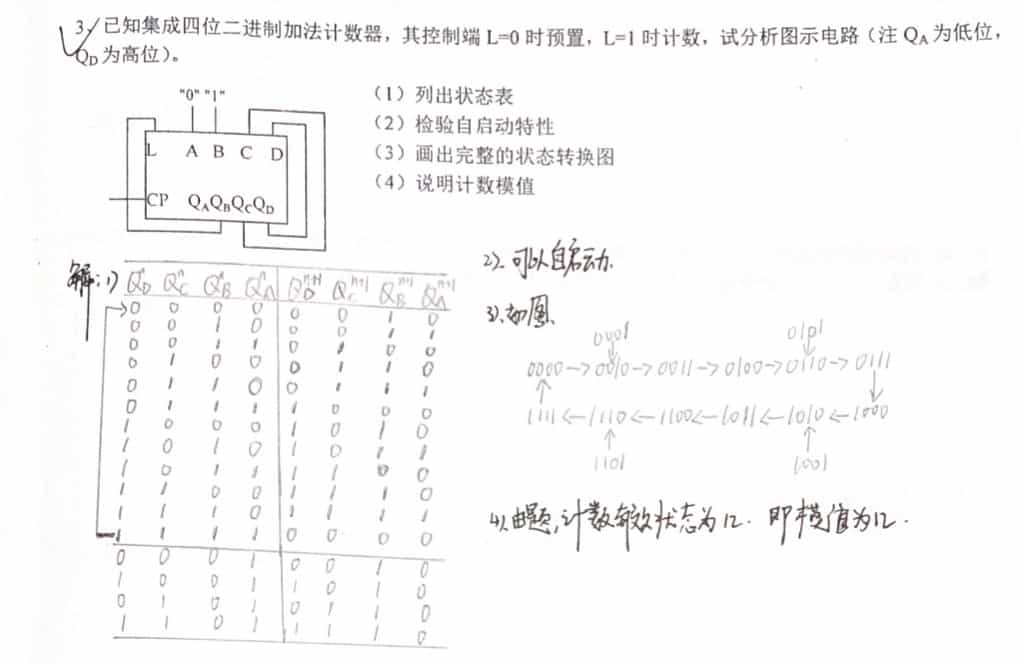 3、已知集成四位二进制加法计数器，其控制端 L=0 时预置，L=1 时计数，试分析图示电路（注 QA 为低位，
QD 为高位）。
"0" "1"
L A B C D
CP QAQBQCQD
（1）列出状态表
（2）检验自启动特性
（3）画出完整的状态转换图
（4）说明计数模值
解：1)
Q_D^n Q_C^n Q_B^n Q_A^n Q_D^{n+1} Q_C^{n+1} Q_B^{n+1} Q_A^{n+1}
0 0 0 0 0 0 1 0
0 0 1 0 0 0 1 1
0 0 1 1 0 1 0 0
0 1 0 0 0 1 1 0
0 1 1 0 0 1 1 1
0 1 1 1 1 0 0 0
1 0 0 0 1 0 1 0
1 0 1 0 1 0 1 1
1 0 1 1 1 1 0 0
1 1 0 0 1 1 1 0
1 1 1 0 1 1 1 1
1 1 1 1 0 0 0 0
0 0 0 1 0 0 1 0
1 0 0 1 1 0 1 0
0 1 0 1 0 1 1 0
1 1 0 1 1 1 1 0
2). 可以自启动.
3).如图.
0001 0101
0000→0010→0011→0100→0110→0111
1111←1110←1100←1011←1010←1000
1101 1001
4).由题,计数有效状态为12. 即模值为12.